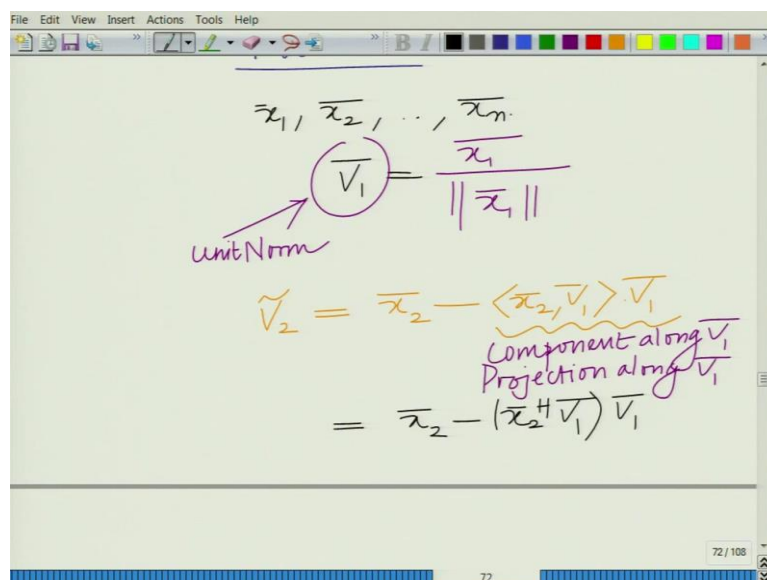 File Edit View Insert Actions Tools Help
x̄₁, x̄₂, .., x̄ₙ.
V̄₁ = x̄₁ / ||x̄₁||
unit Norm
Ṽ₂ = x̄₂ − <x̄₂, V̄₁> V̄₁
Component along V̄₁
Projection along V̄₁
= x̄₂ − (x̄₂ᴴ V̄₁) V̄₁
72 / 108
72